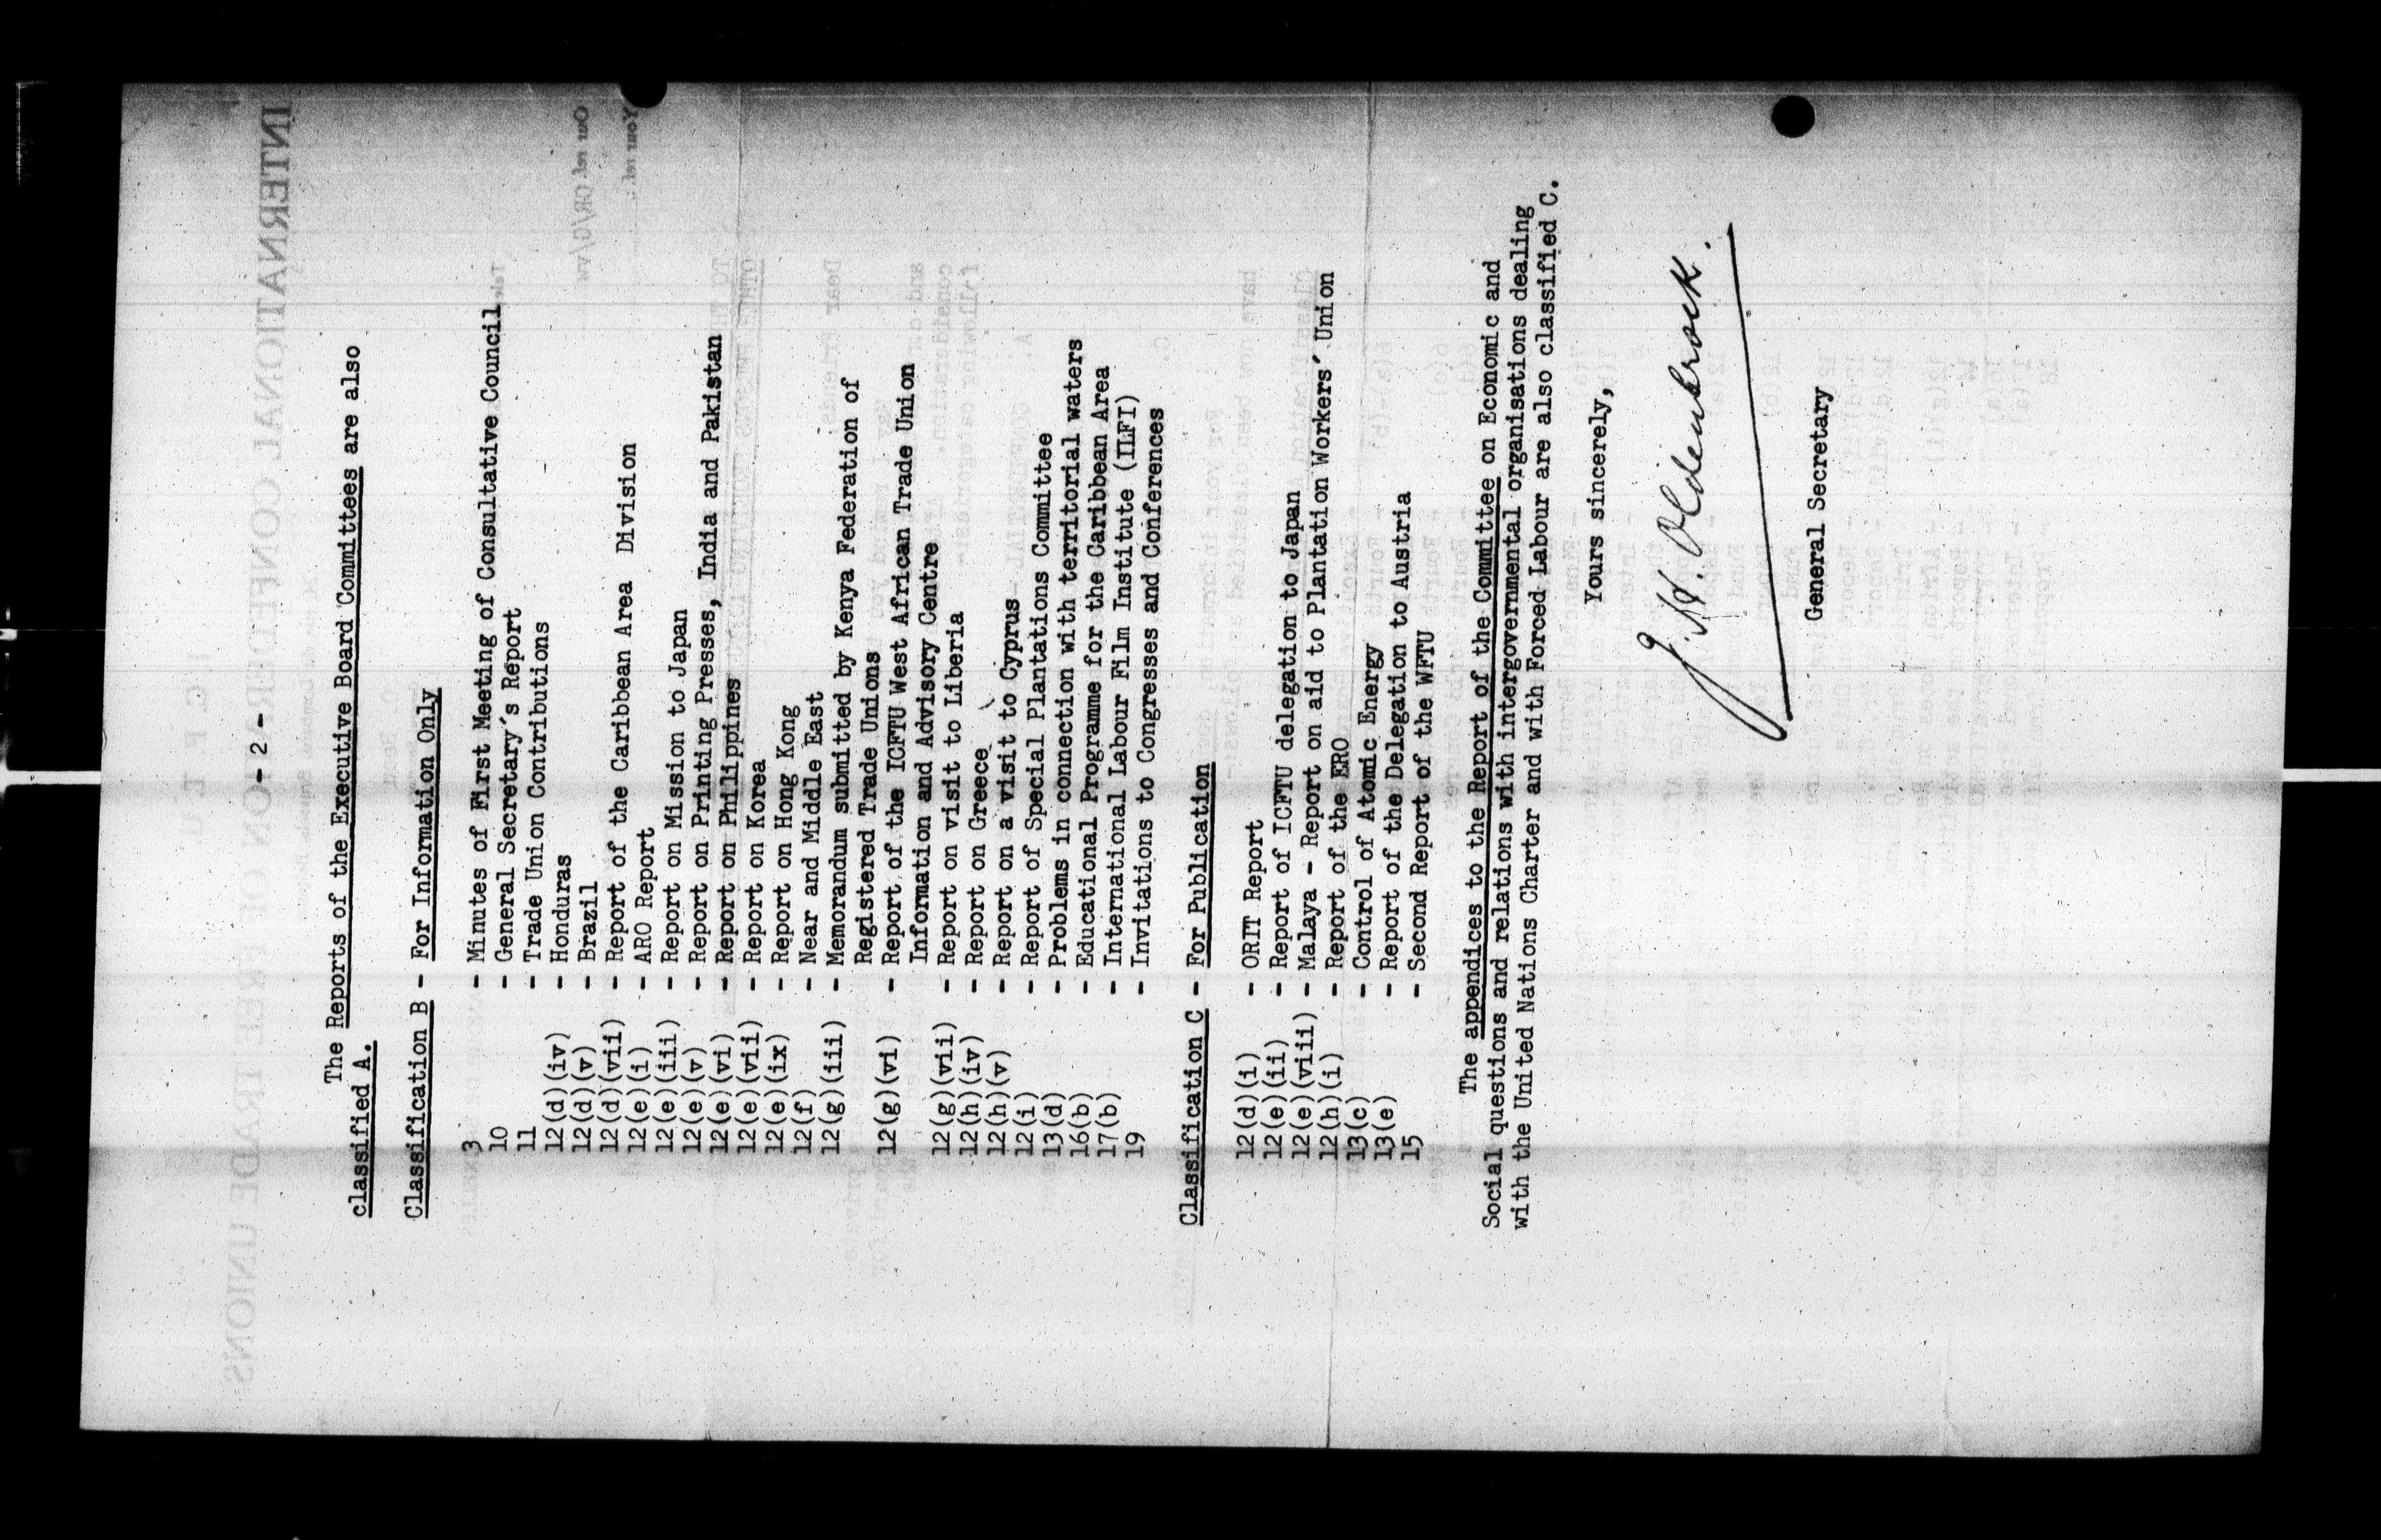 - 2 -
The Reports of the Executive Board Committees are also
classified A.
Classification B - For Information Only
3 - Minutes of First Meeting of Consultative Council
10 - General Secretary's Report
11 - Trade Union Contributions
12(d)(iv) - Honduras
12(d)(v) - Brazil
12(d)(vii) - Report of the Caribbean Area Division
12(e)(i) - ARO Report
12(e)(iii) - Report on Mission to Japan
12(e)(v) - Report on Printing Presses, India and Pakistan
12(e)(vi) - Report on Philippines
12(e)(vii) - Report on Korea
12(e)(ix) - Report on Hong Kong
12(f) - Near and Middle East
12(g)(iii) - Memorandum submitted by Kenya Federation of
Registered Trade Unions
12(g)(vi) - Report of the ICFTU West African Trade Union
Information and Advisory Centre
12(g)(vii) - Report on visit to Liberia
12(h)(iv) - Report on Greece
12(h)(v) - Report on a visit to Cyprus
12(i) - Report of Special Plantations Committee
13(d) - Problems in connection with territorial waters
16(b) - Educational Programme for the Caribbean Area
17(b) - International Labour Film Institute (ILFI)
19 - Invitations to Congresses and Conferences
Classification C - For Publication
12(d)(i) - ORIT Report
12(e)(ii) - Report of ICFTU delegation to Japan
12(e)(viii) - Malaya - Report on aid to Plantation Workers' Union
12(h)(i) - Report of the ERO
13(c) - Control of Atomic Energy
13(e) - Report of the Delegation to Austria
15 - Second Report of the WFTU
The appendices to the Report of the Committee on Economic and
Social questions and relations with intergovernmental organisations dealing
with the United Nations Charter and with Forced Labour are also classified C.
Yours sincerely,
J.H. Oldenbroek.
General Secretary